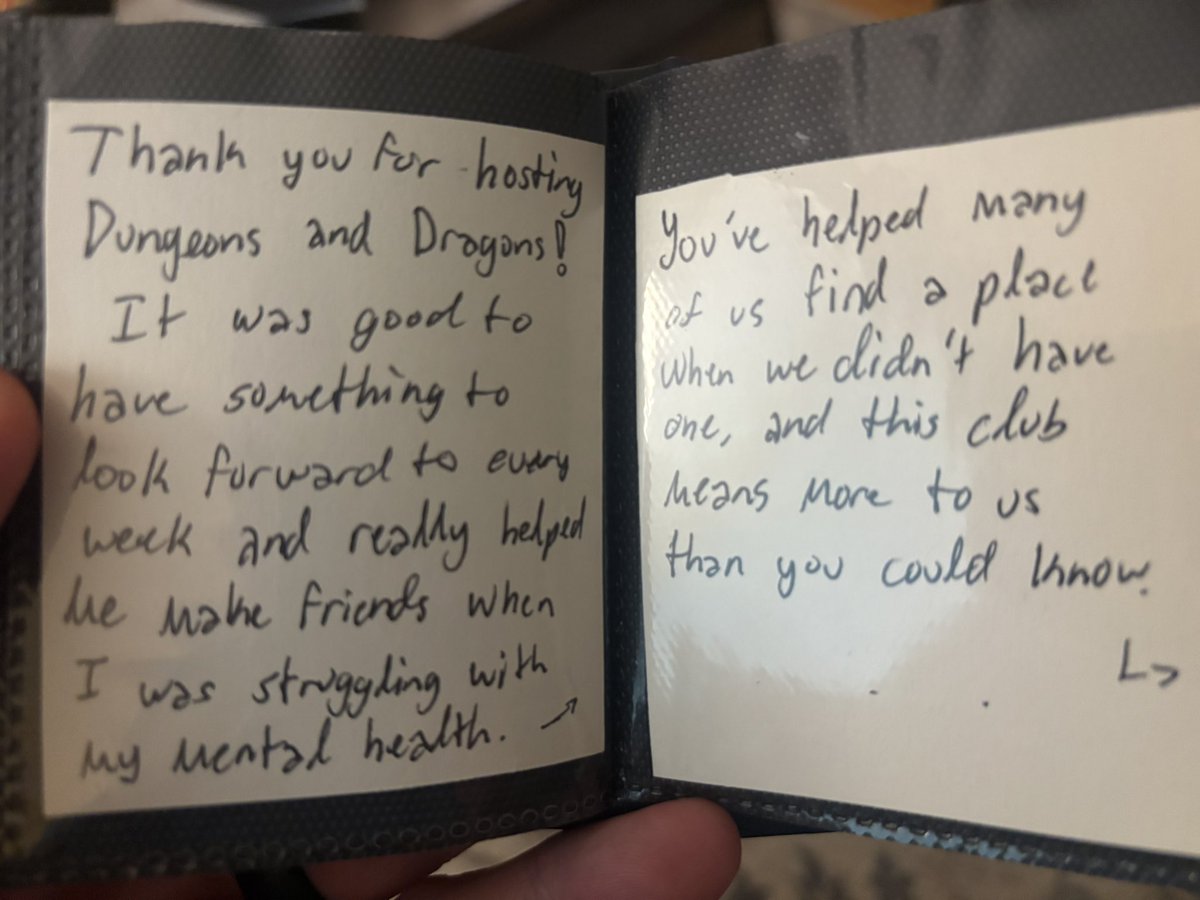 Thank you for hosting
Dungeons and Dragons!
It was good to
have something to
look forward to every
week and really helped
me make friends when
I was struggling with
my mental health. →
You've helped many
of us find a place
when we didn't have
one, and this club
means more to us
than you could know.
↳